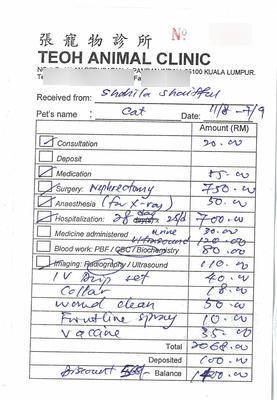 張寵物診所
Nº
TEOH ANIMAL CLINIC
55100 KUALA LUMPUR.
Received from: Shahila
Pet's name: Cat Date: 11/8 - 7/9
Amount (RM)
Consultation 20.00
Deposit
Medication 85.00
Surgery: Nephrectomy 750.00
Anaesthesia (for X-ray) 50.00
Hospitalization: 28 day 25/d 700.00
Medicine administered urine 30.00
ultrasound 120.00
Blood work: PBF / QBC / Biochemistry 80.00
Imaging: Radiography / Ultrasound 110.00
IV Drip set 40.00
Collar 18.00
Wound clean 50.00
Frontline spray 10.00
Vaccine 35.00
Total 2068.00
Deposited 100.00
Discount Balance